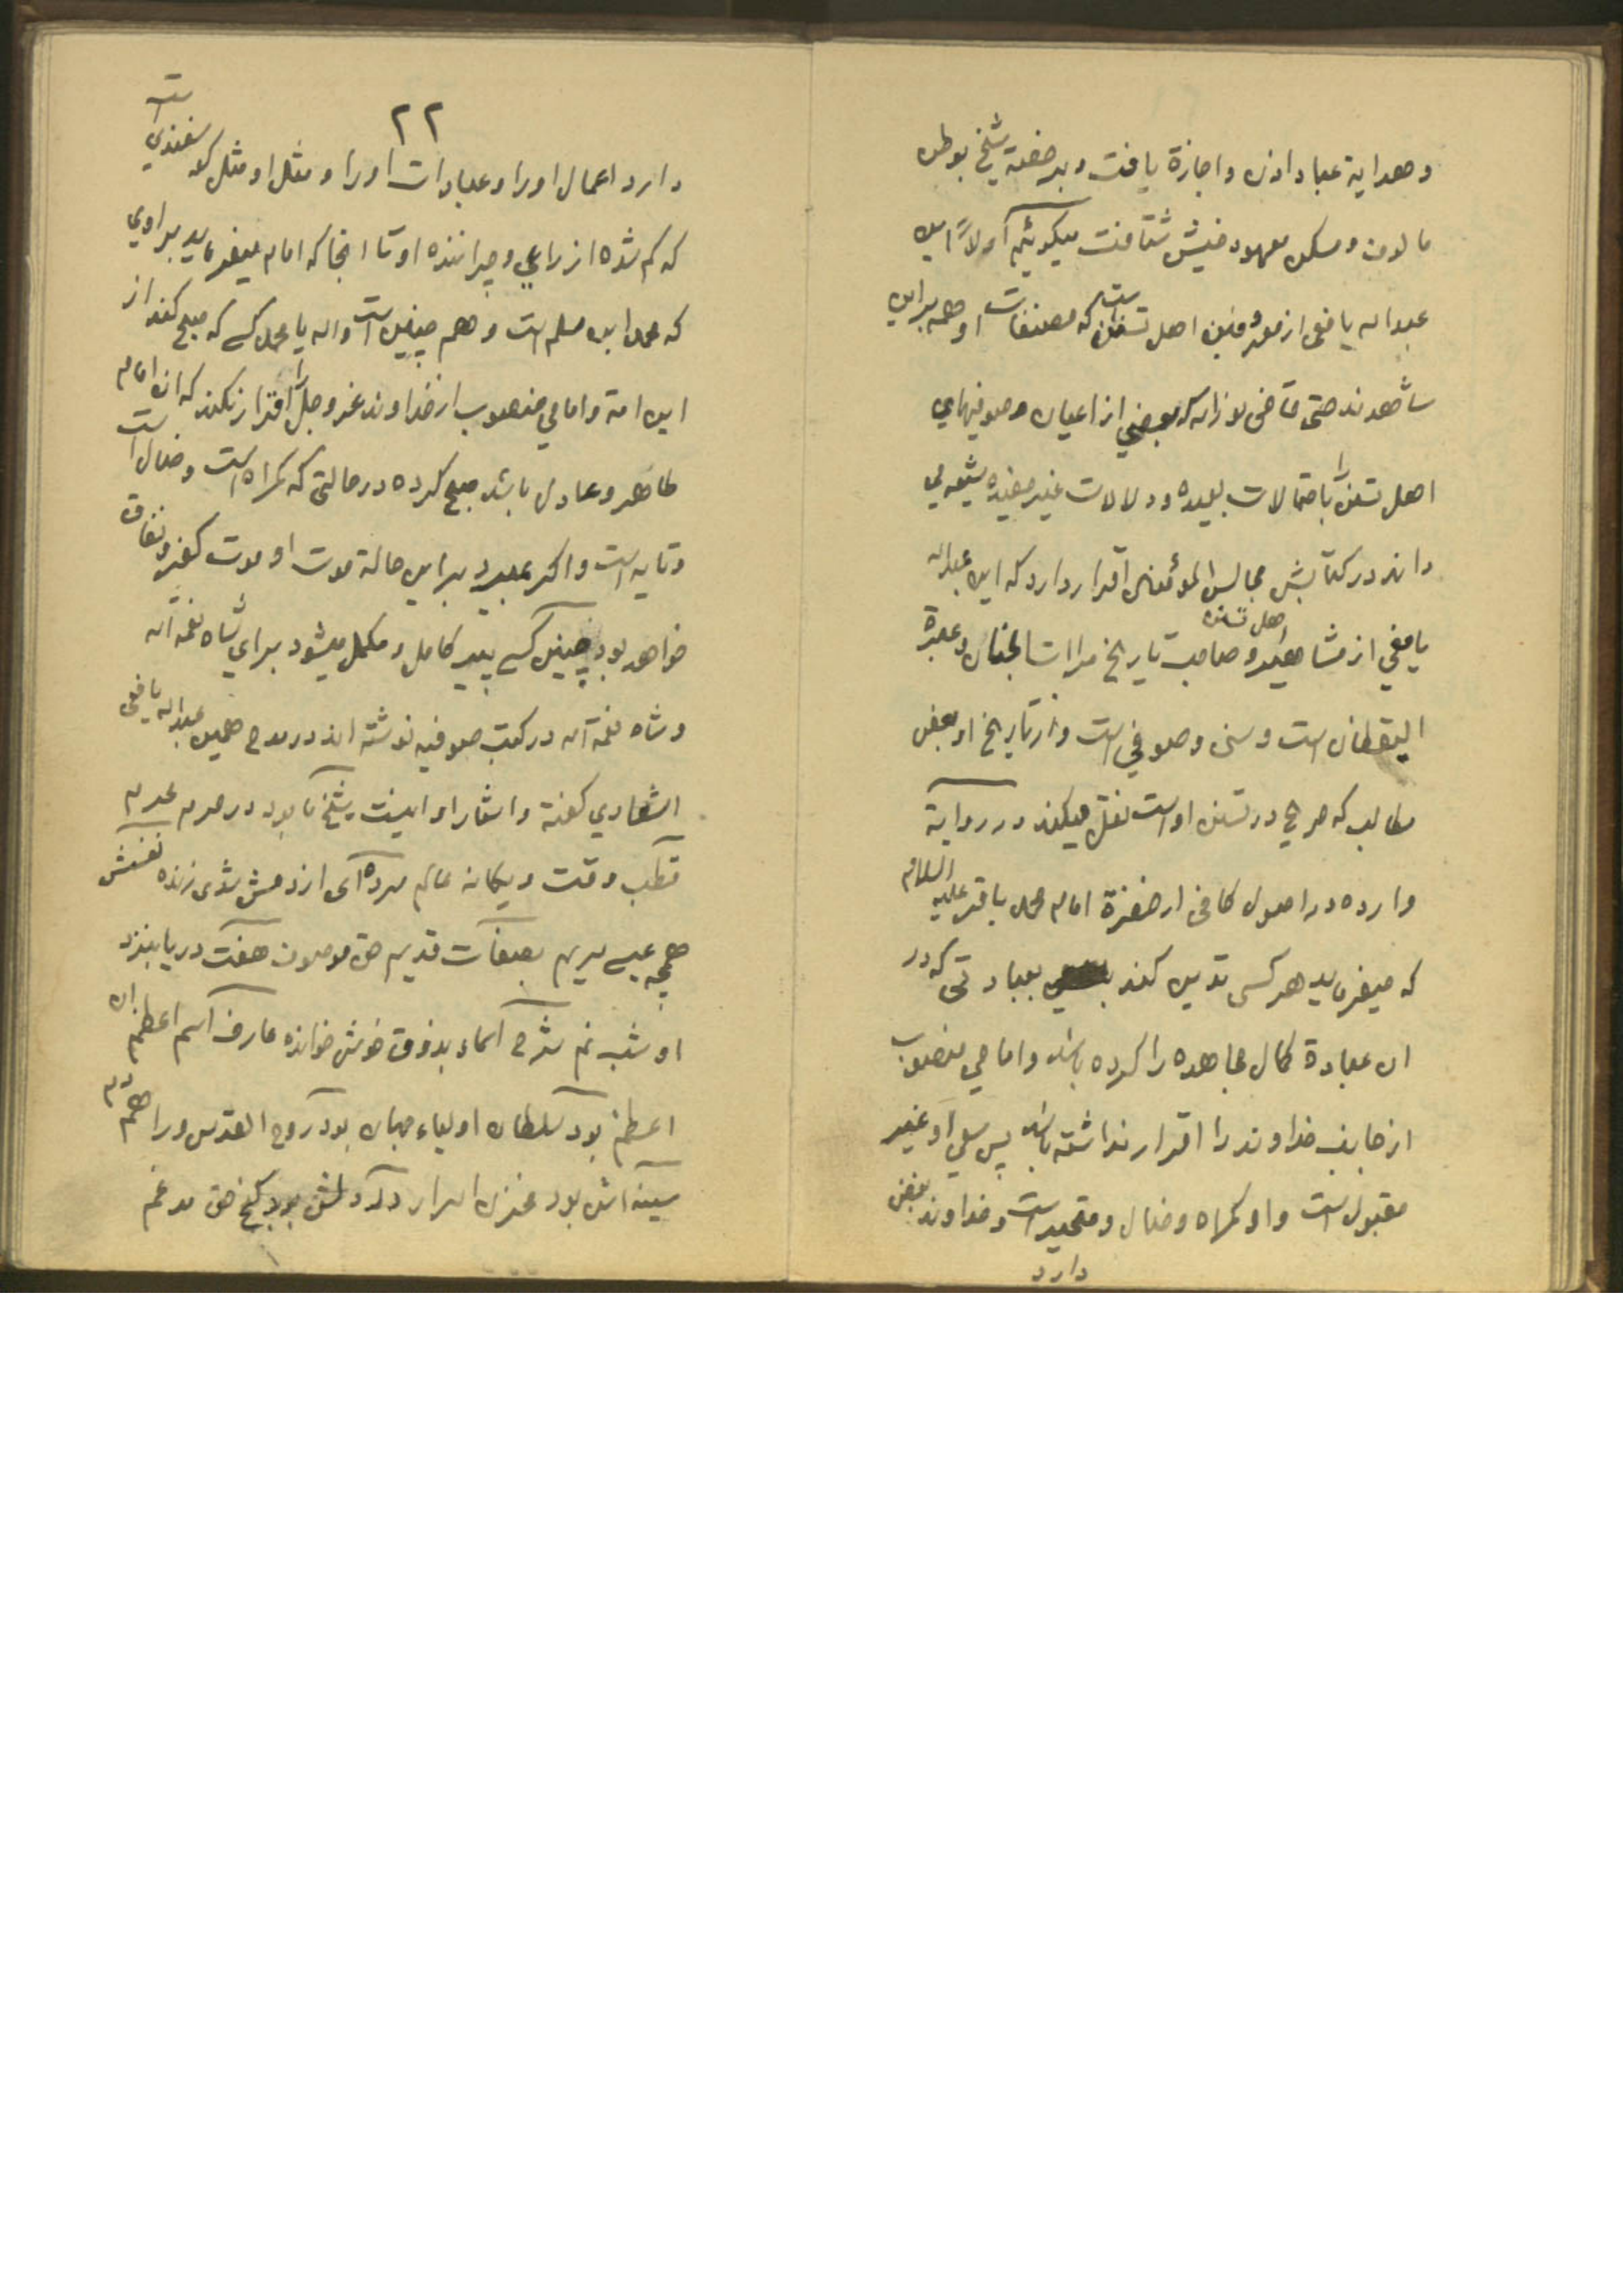 و هدایة عباد اذن و اجازة یافت و برخصة شیخ بوطن
مالوف و مسکن معهود خویش شتافت میگوئیم اولاً این
عبداله یافعی از معروفین اهل تسنن است که مصنفات او همه براین
شاهدند حتی قاضی نورالله که بعضی از اعیان و صوفیهای
اهل تسنن را باحتمالات بعیده و دلالات غیر مفیده شیعه می
داند در کتابش مجالس المؤمنین اقرار دارد که این عبداله
یافعی از مشاهیر اهل تسنن و صاحب تاریخ مرات الجنان و عبرة
الیقظان است و سنی و صوفی است و از تاریخ او بعض
مطالب که صریح در تسنن اوست نقل میکند در روایة
وارده در اصول کافی از حضرة امام محمد باقر علیه السلام
که میفرماید هر کسی تدین کند بعبادتی که در
ان عبادة کمال مجاهده را کرده باشد و امامی منصوب
از جانب خداوند را اقرار نداشته باشد پس سعی او غیر
مقبول است و او گمراه و ضال و متحیر است و خداوند بغض
دارد
٢٢
دارد اعمال او را و عبادات او را و مثل او مثل گوسفندی است
که گم شده از راعی و چراننده او تا انجا که امام میفرماید براوی
که محمد ابن مسلم است و هم چنین است واله یا محمد کسی که صبح کند از
این امة و امامی منصوب از خداوند عز و جل را اقرار نکند که ان امام
ظاهر و عادل باشد صبح کرده در حالتی که گمراه است و ضال است
و تایه است و اگر بمیرد براین حالة موت او موت کفر و نفاق
خواهد بود چنین کسی پیر کامل و مکمل میشود برای شاه نعمة اله
و شاه نعمة اله در کتب صوفیه نوشته اند در مدح همین عبداله یافعی
اشعاری گفته و اشعار او اینست شیخ ما بود در حرم محرم
قطب وقت و یگانه عالم مرده ای از دمش شدی زنده نفسش
همچو عیسی مریم بصفات قدیم حق موصوف هفت دریا بنزد
او شب نم شرح اسماء بذوق خوش خوانده عارف اسم اعظم ان
اعظم بود سلطان اولیاء جهان بود روح القدس ورا همدم
سینه اش بود مخزن اسرار در دلش بود گنج حق مدغم